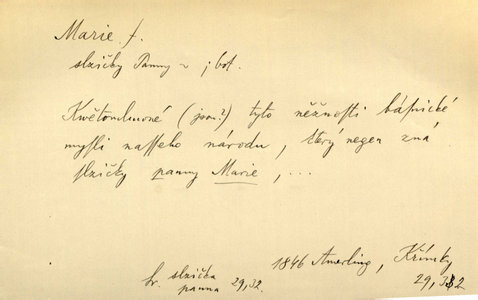 Marie f.
slzičky Panny ~ ; bot.
Kwětomluvné (jsou?) tyto něžnosti básnické
mysli našeho národu, který nejen zná
slzičky panny Marie, ...
1846 Amerling, Květy
sv. slzička 29,32.
panna
29,32